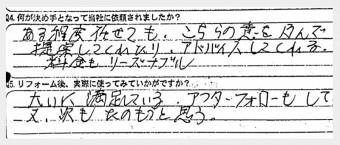 04. 何が決め手となって当社に依頼されましたか?
ある程度任せても、こちらの意をくんで
提案してくれたり、アドバイスしてくれる。
料金もリーズナブル
05. リフォーム後、実際に使ってみていかがですか?
大いに満足している。アフターフォローもして
又、次もたのもうと思う。